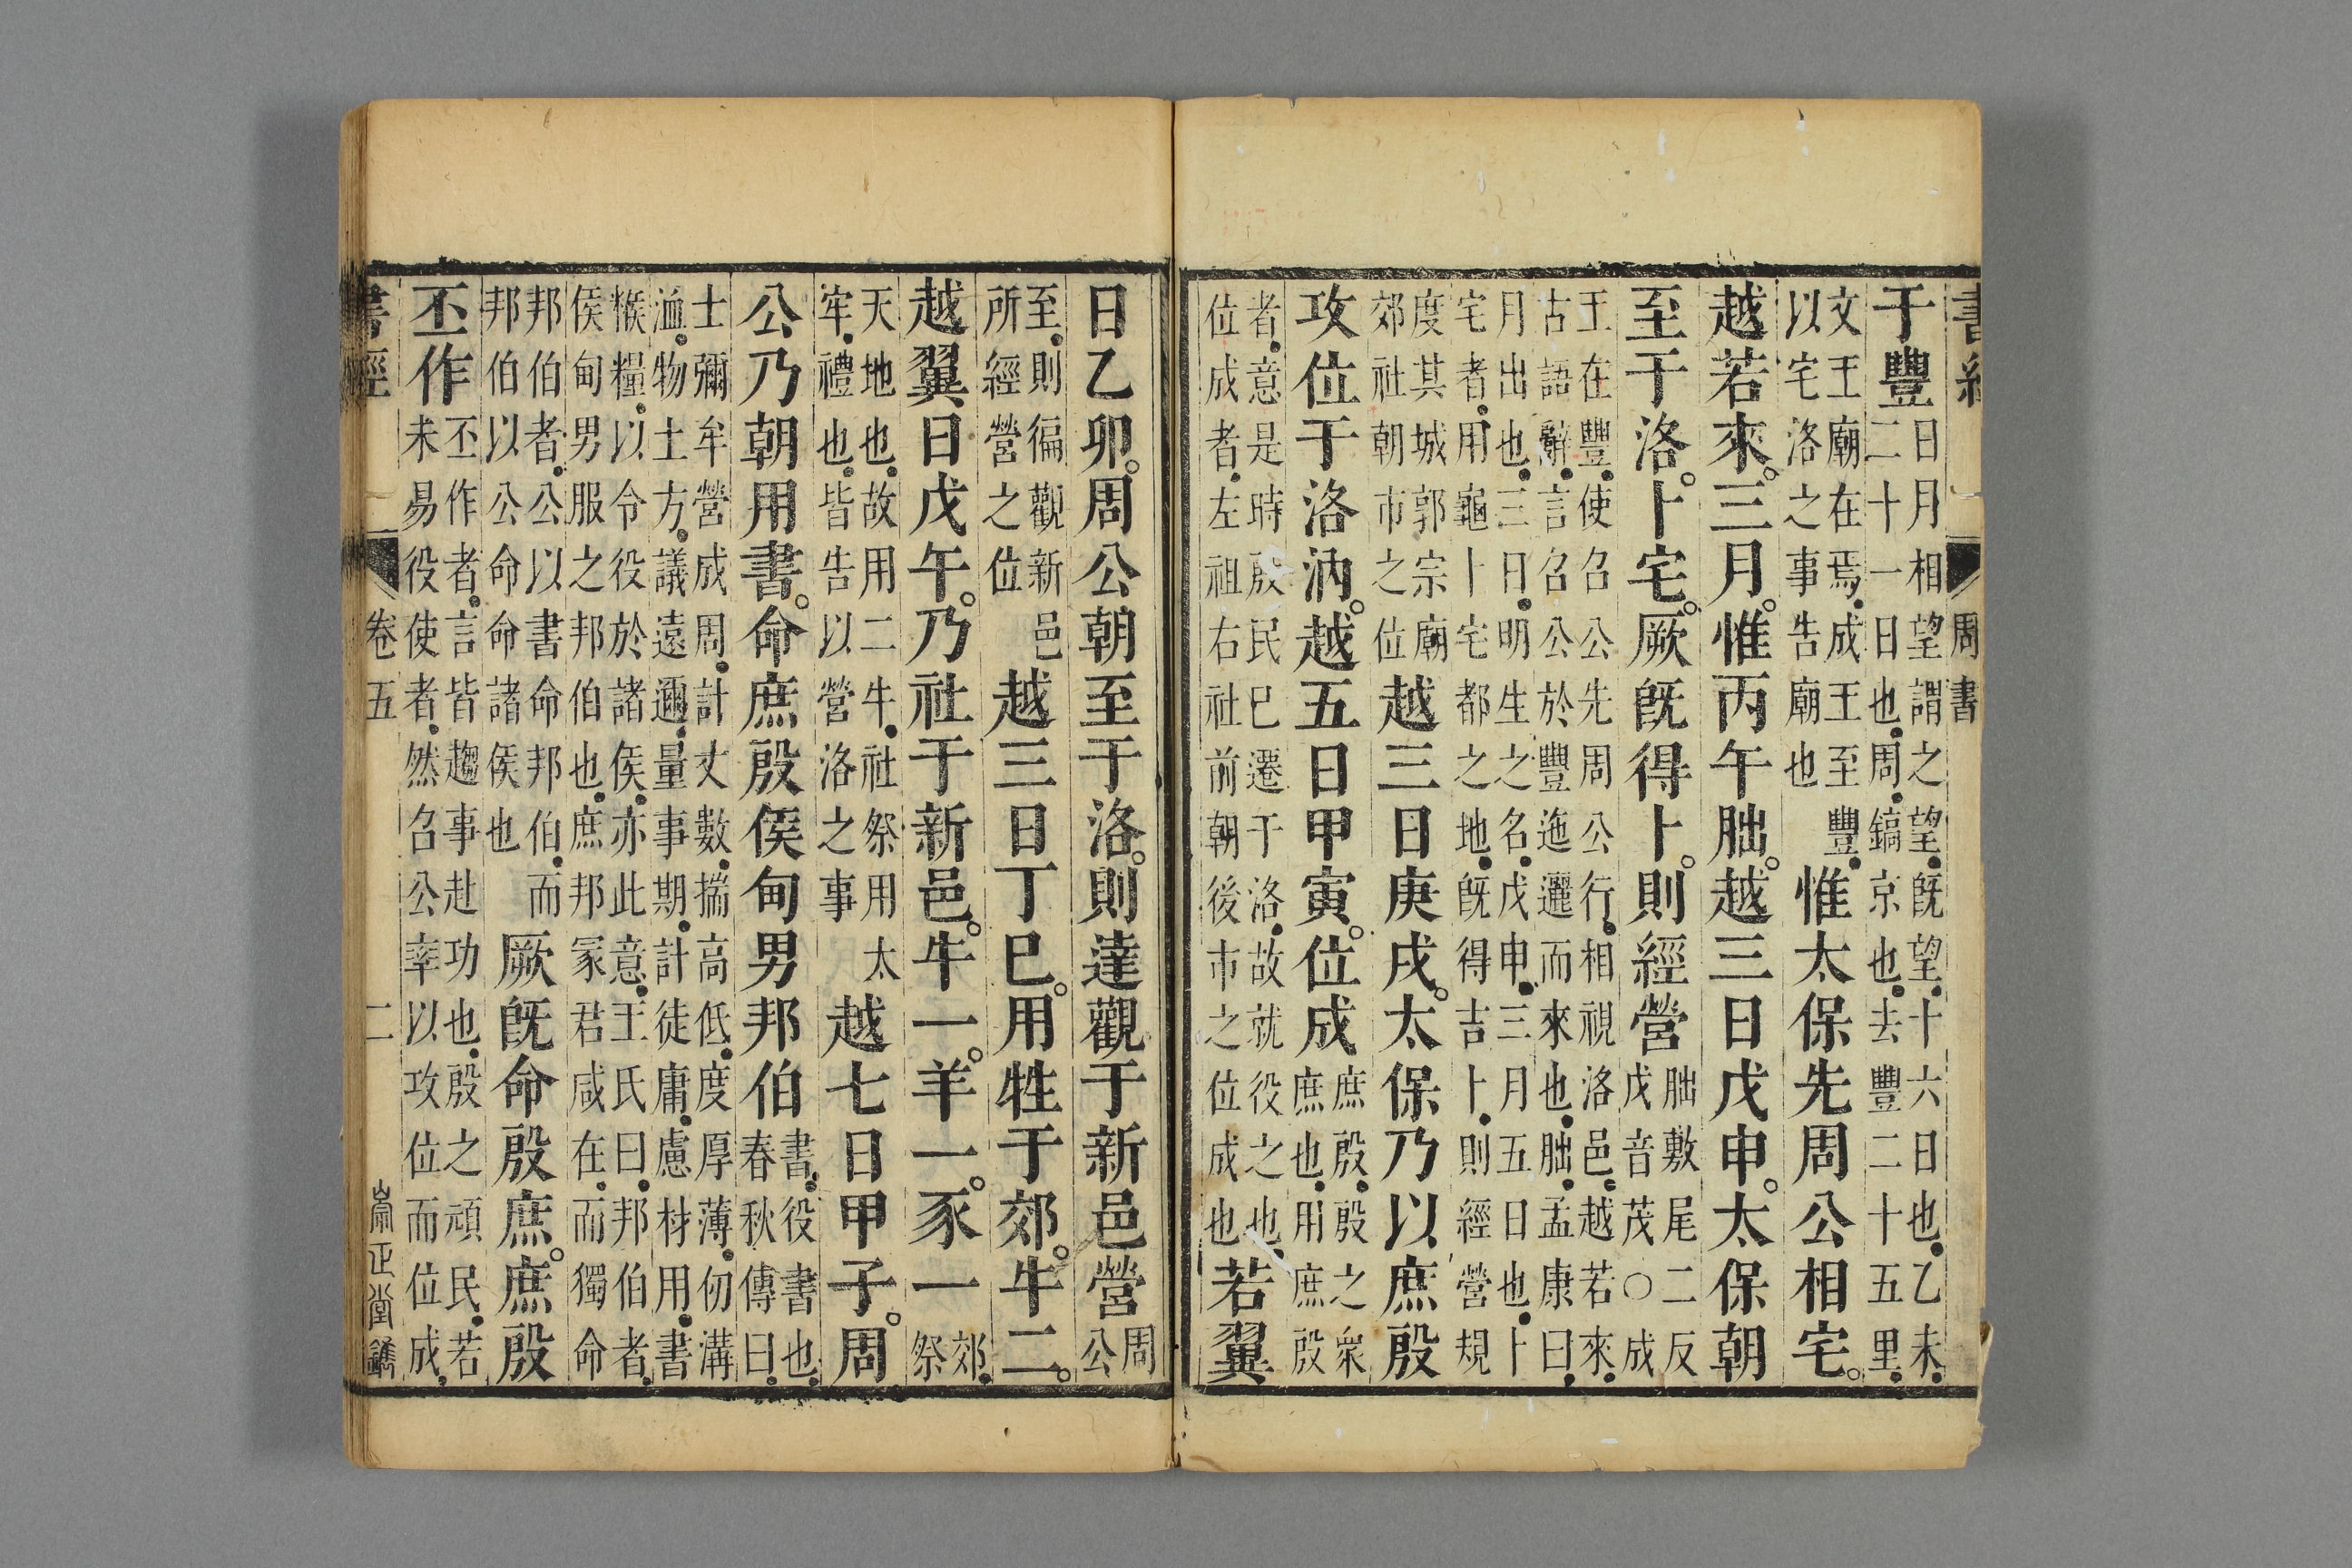 書經 周書
于豐
日月相望謂之望。既望。十六日也。乙未。
二十一日也。周。鎬京也。去豐二十五里。
文王廟在焉。成王至豐。
以宅洛之事告廟也
惟太保先周公相宅。
越若來。三月。惟丙午朏。越三日戊申。太保朝
至于洛。卜宅。厥既得卜。則經營
朏敷尾二反
戊音茂○成
王在豐。使召公先周公行。相視洛邑。越若來。
古語辭。言召公於豐迤邐而來也。朏。孟康曰。
月出也。三日。明生之名。戊申。三月五日也。卜
宅者。用龜卜宅都之地。既得吉卜。則經營規
度其城郭宗廟
郊社朝市之位
越三日庚戌。太保乃以庶殷
攻位于洛汭。越五日甲寅。位成
庶殷。殷之衆
庶也。用庶殷
者。意是時殷民已遷于洛。故就役之也。
位成者。左祖右社前朝後市之位成也
若翼
日乙卯。周公朝至于洛。則達觀于新邑營
周
公
至。則徧觀新邑
所經營之位
越三日丁巳。用牲于郊。牛二。
越翼日戊午。乃社于新邑。牛一。羊一。豕一
郊。
祭
天地也。故用二牛。社祭用太
牢。禮也。皆告以營洛之事
越七日甲子。周
公乃朝用書。命庶殷侯甸男邦伯
書。役書也。
春秋傳曰。
士彌牟營成周。計丈數。揣高低。度厚薄。仞溝
洫。物土方。議遠邇。量事期。計徒庸。慮材用。書
糇糧。以令役於諸侯。亦此意。王氏曰。邦伯者。
侯甸男服之邦伯也。庶邦冢君咸在。而獨命
邦伯者。公以書命邦伯。而
邦伯以公命命諸侯也
厥既命殷庶。庶殷
丕作
丕作者。言皆趨事赴功也。殷之頑民。若
未易役使者。然召公率以攻位而位成。
書經 卷五 二 崇正堂鐫